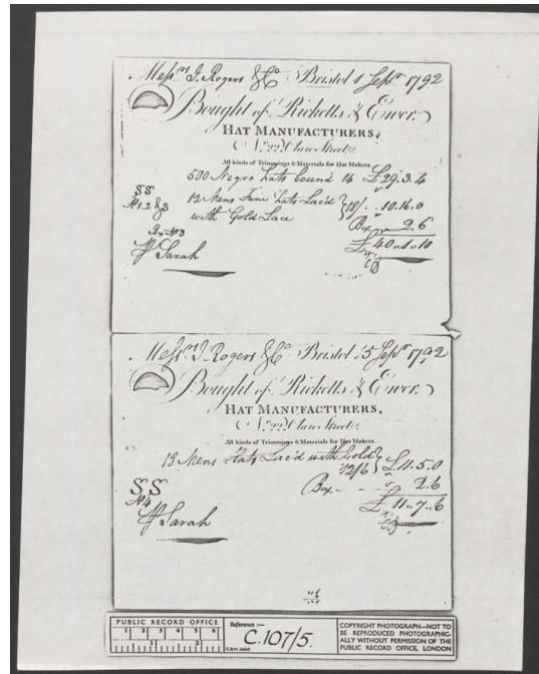 Messrs J. Rogers & Co Bristol 1 Sepr 1792
Bought of Ricketts & Ewer.
HAT MANUFACTURERS,
No. 22, Clare Street.
All kinds of Trimmings & Materials for Hat Makers.
500 Negro hats bound 14 £29.3.4
SS
No 1.2 & 3
12 Mens Fine hats Lac'd } 18/. .. 10.16.0
with Gold Lace
Box 2.6
In No 3
£40 1 10
Sarah
Messrs J. Rogers & Co Bristol 15 Sepr 1792
Bought of Ricketts & Ewer.
HAT MANUFACTURERS,
No. 22, Clare Street.
All kinds of Trimmings & Materials for Hat Makers.
18 Mens Hats Lac'd with Gold }
12/6 £11.5.0
SS
No 4
Box - 2.6
£11..7..6
Sarah
PUBLIC RECORD OFFICE
1 2 3 4 5 6
1 2
Reference :-
C.107/5.
COPYRIGHT PHOTOGRAPH—NOT TO
BE REPRODUCED PHOTOGRAPHIC-
ALLY WITHOUT PERMISSION OF THE
PUBLIC RECORD OFFICE, LONDON